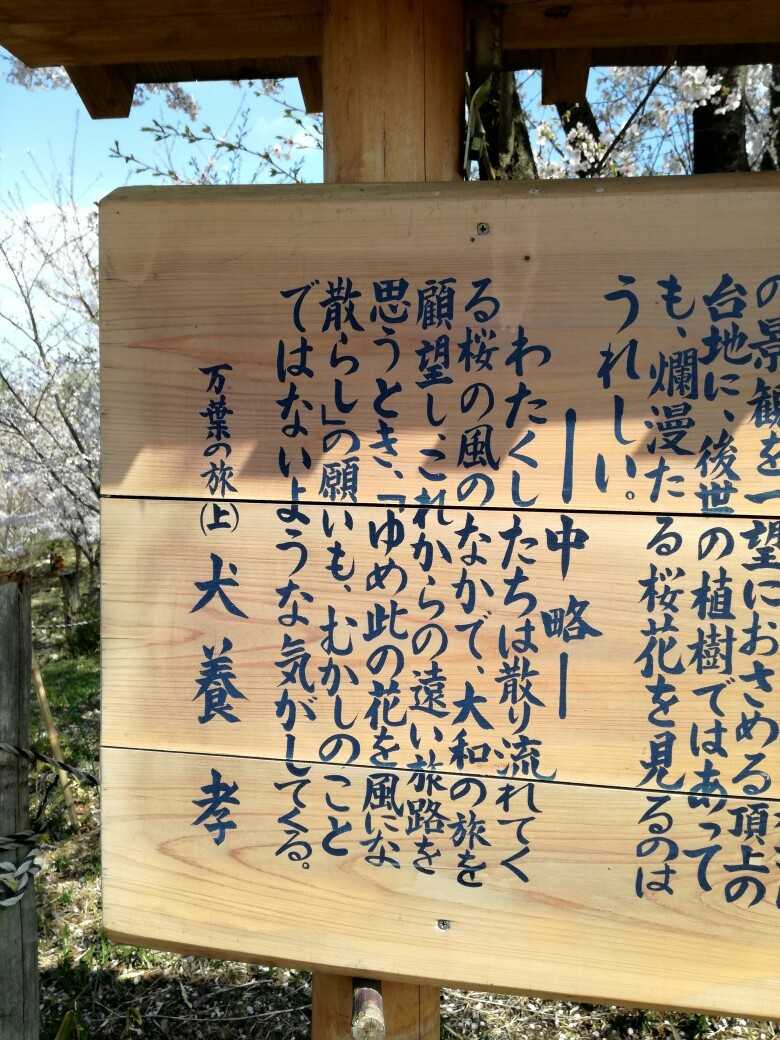 の景観を一望におさめる頂上の
台地に、後世の植樹ではあって
も、爛漫たる桜花を見るのは
うれしい。
―中略―
わたくしたちは散り流れてく
る桜の風のなかで、大和の旅を
顧望し、これからの遠い旅路を
思うとき、「ゆめ此の花を風にな
散らし」の願いも、むかしのこと
ではないような気がしてくる。
万葉の旅(上) 犬養孝